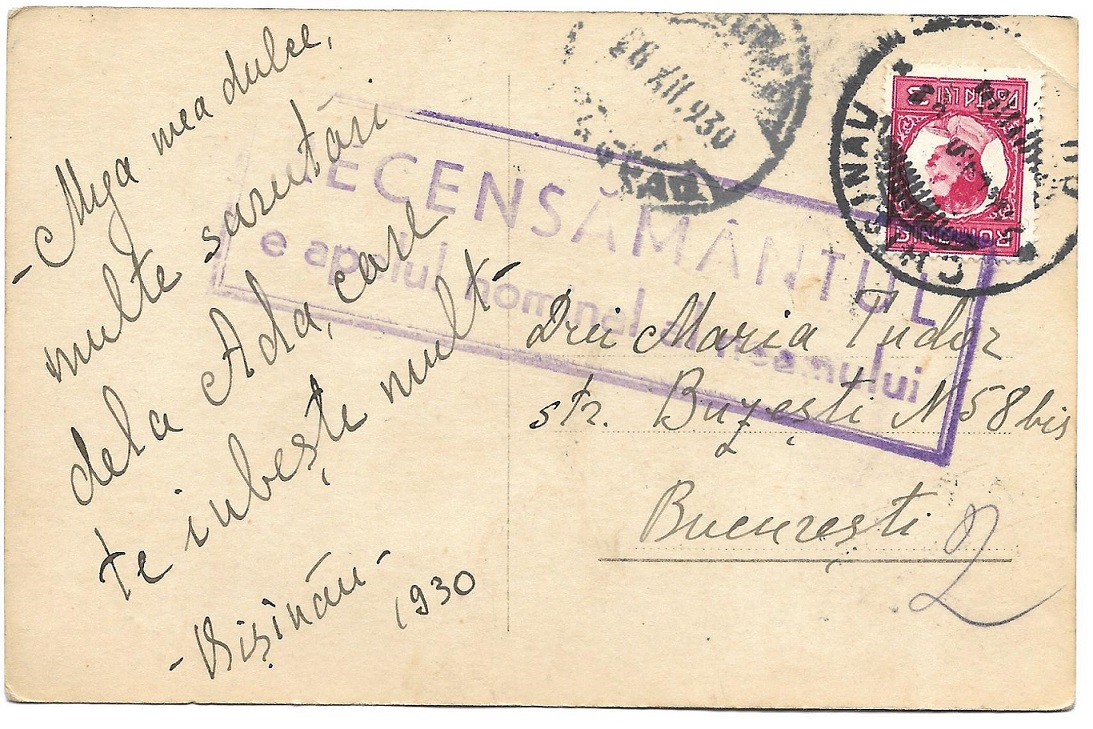 - Mya mea dulce,
multe sarutări
dela Ada, care
te iubește mult -
- Kișinău -
1930
ECENSĂMÂNTUL
e apelul nominal al neamului
28 XII.930
CHIȘINAU
POSTA LEI
ROMANIA
Drei Maria Tudor
str. Buzești N 58 bis
București
2